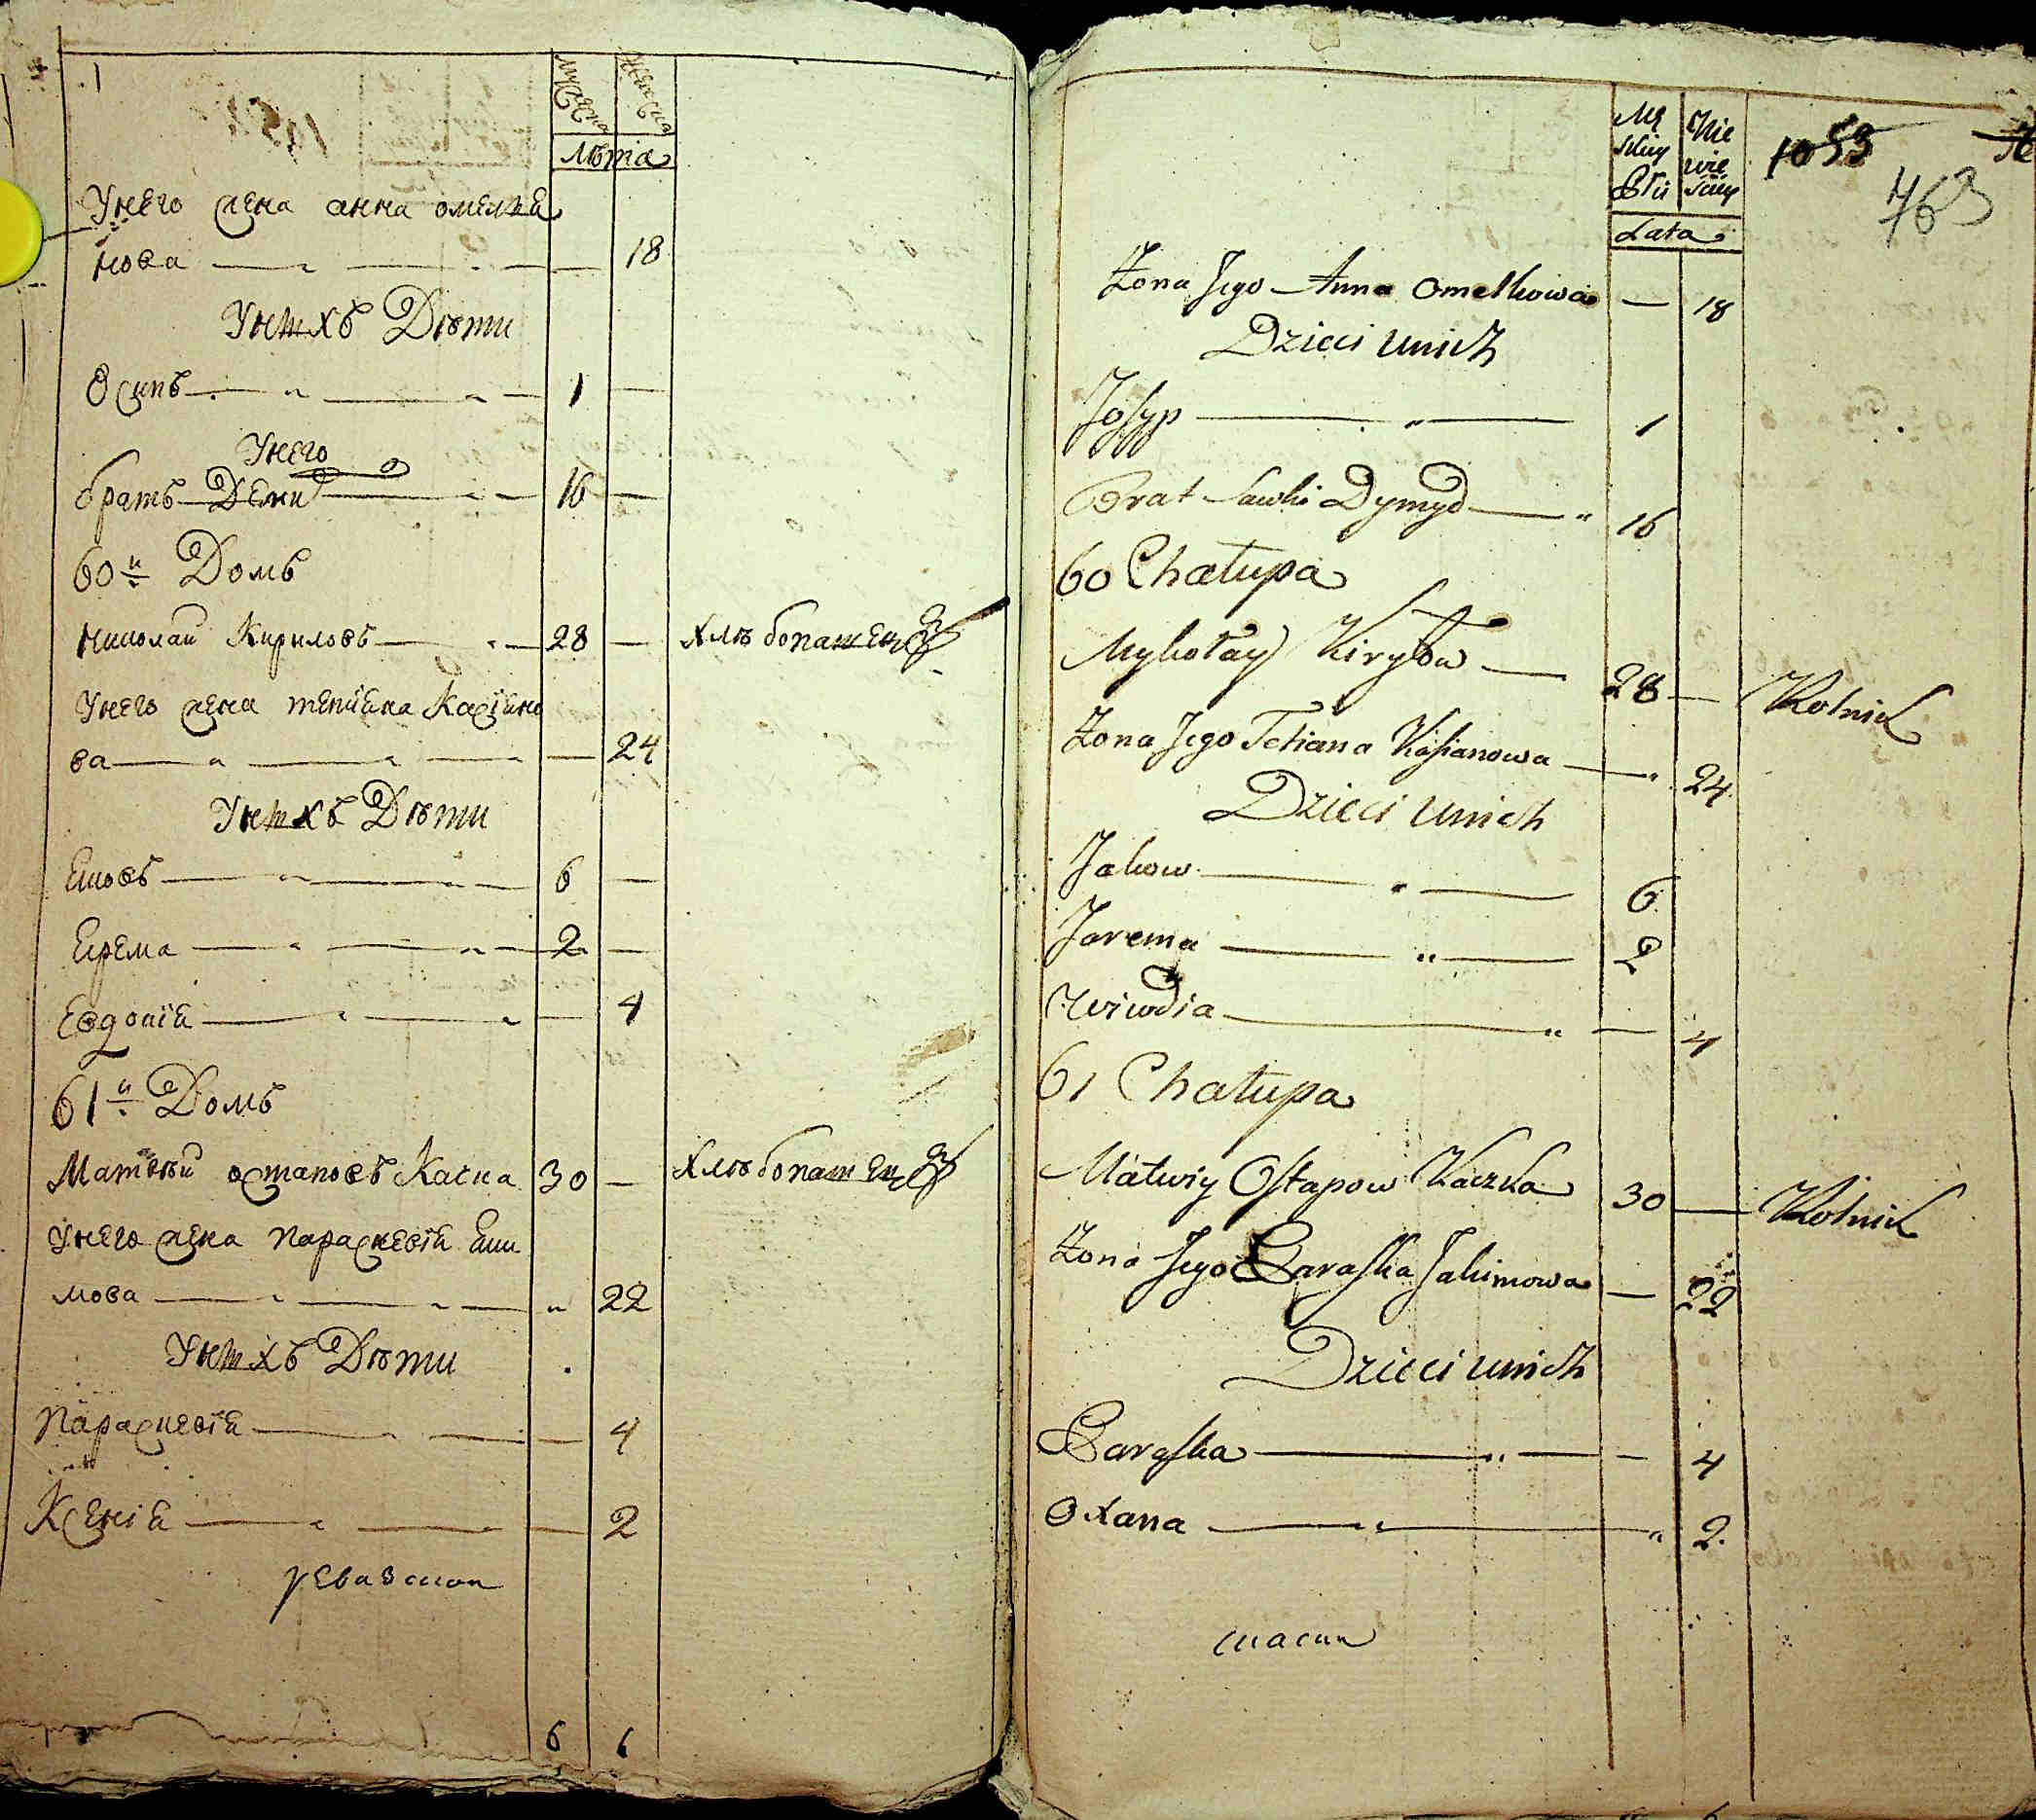 мужеска
женска
лѣта
Унего жена анна омелѧ
нова 18
Унихъ Дѣти
Осипъ 1 —
Унего
братъ Деми 16 —
60й Домъ
Николай Кириловъ 28 — хлѣбопашецъ
Унего жена тетіана Касіано
ва — 24
Унихъ Дѣти
Яковъ 6 —
Ерема 2 —
Евдокіѧ — 4
61й Домъ
Матвѣй остаповъ Качка 30 — хлѣбопашецъ
Унего жена параскевіѧ Яки
мова 22
Унихъ Дѣти
Параскевіѧ — 4
Ксеніѧ — 2
6 6
Mę
skiey
Płci
Nie
wie
sciey
Lata
1053
763
Żona Jego Anna Omelkowa — 18
Dzieci unich
Josyp 1
Brat Sawki Dymyd 16
60 Chałupa
Mykołay Kiryłow 28 — Rolnik
Żona Jego Tetiana Kasianowa 24
Dzieci unich
Jakow 6
Jarema 2
Jewdia — 4
61 Chałupa
Matwiy Ostapow Kaczka 30 — Rolnik
Żona Jego Paraska Jakimowa — 22
Dzieci unich
Paraska — 4
Oxana 2